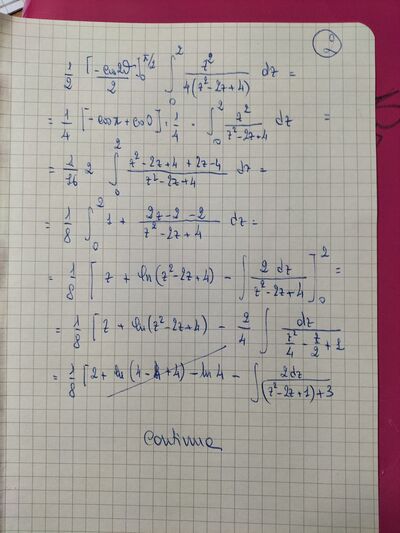 2
1/2 [-cos2ϑ/2]₀^π/2 ∫₀² z²/4(z²-2z+4) dz =
= 1/4 [-cosπ + cos0] · 1/4 · ∫₀² z²/z²-2z+4 dz =
= 1/16 2 ∫₀² z²-2z+4+2z-4/z²-2z+4 dz =
= 1/8 ∫₀² 1 + 2z-2-2/z²-2z+4 dz =
= 1/8 [z + ln(z²-2z+4) - ∫ 2dz/z²-2z+4]₀² =
= 1/8 [z + ln(z²-2z+4) - 2/4 ∫ dz/z²/4 - z/2 + 1
= 1/8 [2 + ln(4-4+4) - ln4 - ∫ 2dz/(z²-2z+1)+3
continua